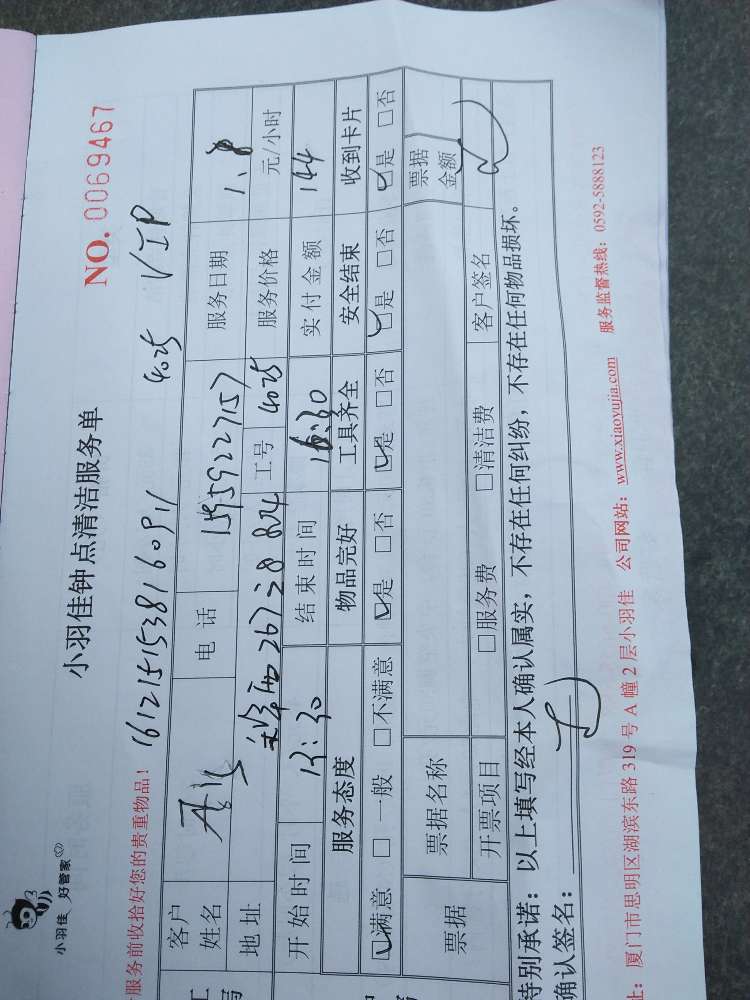 小羽佳 好管家
小羽佳钟点清洁服务单
NO. 0069467
服务前收拾好您的贵重物品！ 1612151538160911 4025 VIP
客户姓名 电话 15959227157 服务日期 1.8
地址 267-28 824 工号 4025 服务价格 元/小时
开始时间 13:30 结束时间 16:30 实付金额 144
服务态度 物品完好 工具齐全 安全结束 收到卡片
☑满意 □一般 □不满意 ☑是 □否 ☑是 □否 ☑是 □否 ☑是 □否
票据 票据名称 票据金额
开票项目 □服务费 □清洁费 客户签名
特别承诺：以上填写经本人确认属实，不存在任何纠纷，不存在任何物品损坏。
确认签名：
址：厦门市思明区湖滨东路 319 号 A 幢 2 层小羽佳 公司网站：www.xiaoyujia.com 服务监督热线：0592-5888123